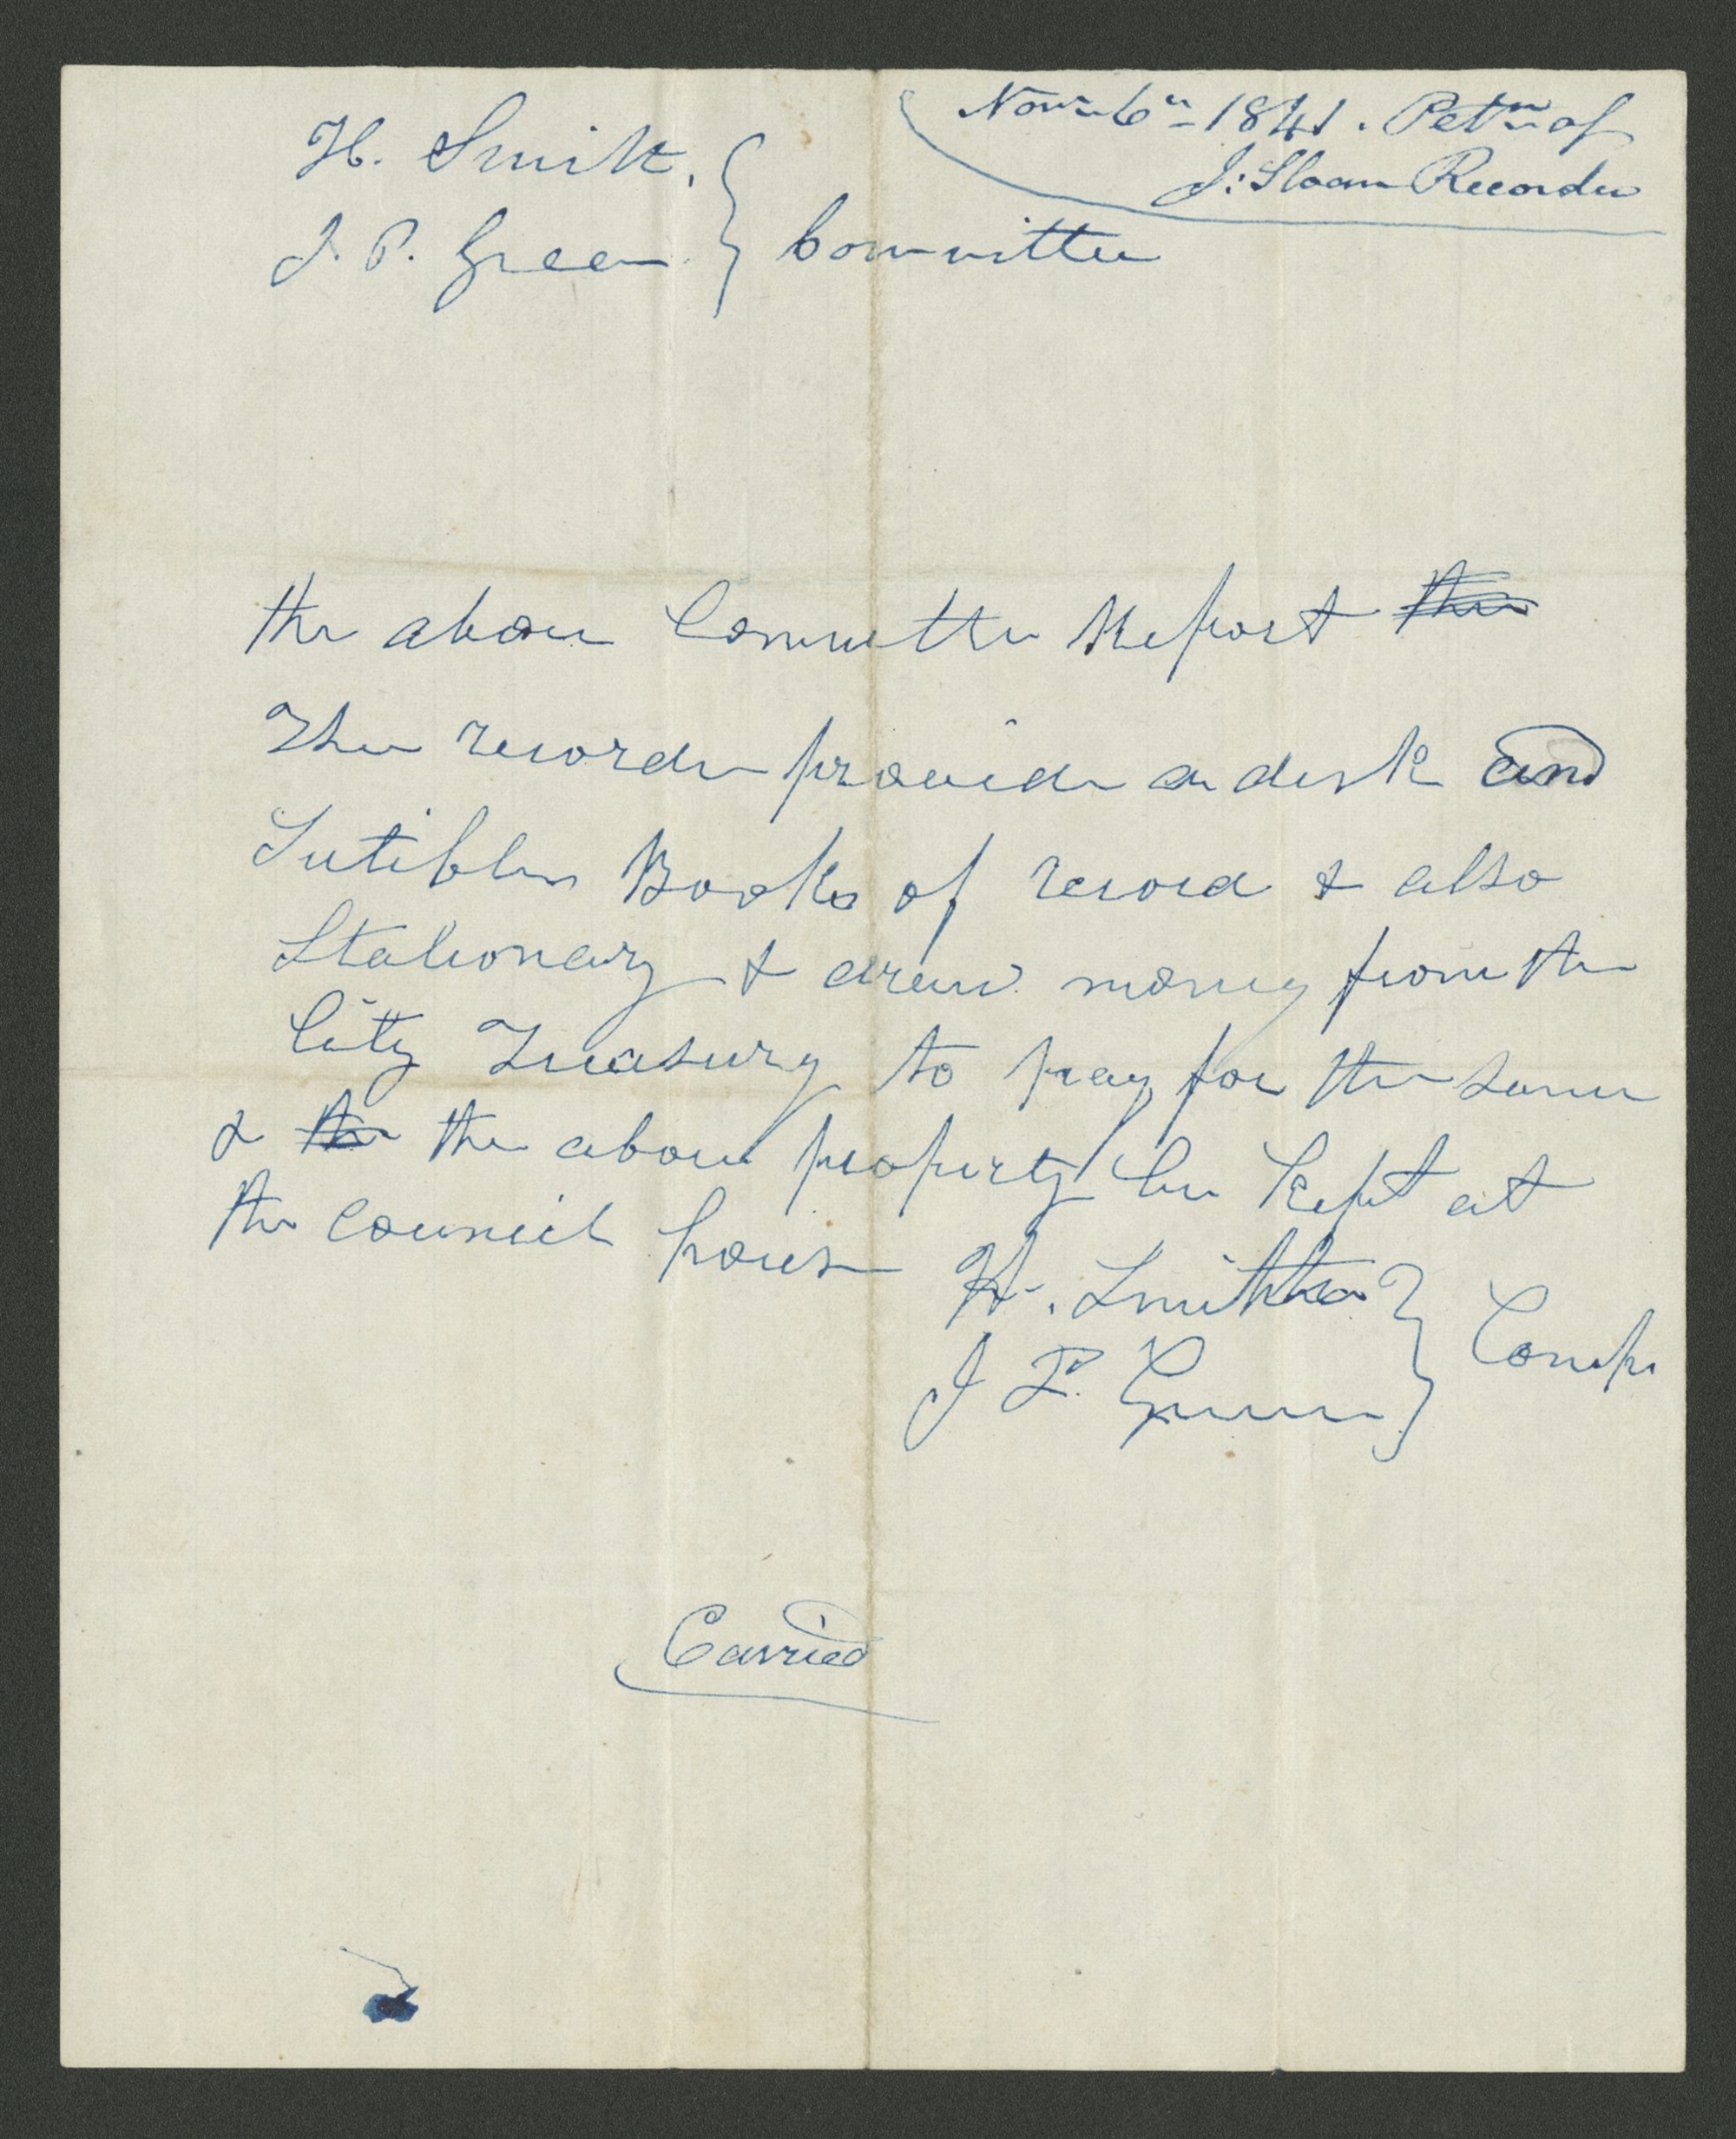 Novr. 6th 1841. Pettn of
J: Sloan Recorder
H. Smith.
J. P. Green } Committee
the above Committee Report the
The recorder provide a desk and
Sutible Books of record & also
Stationary & draw money from the
City Treasury to pay for the same
& the the above property be kept at
the council house
H. Smith
J P. Green }
Carried